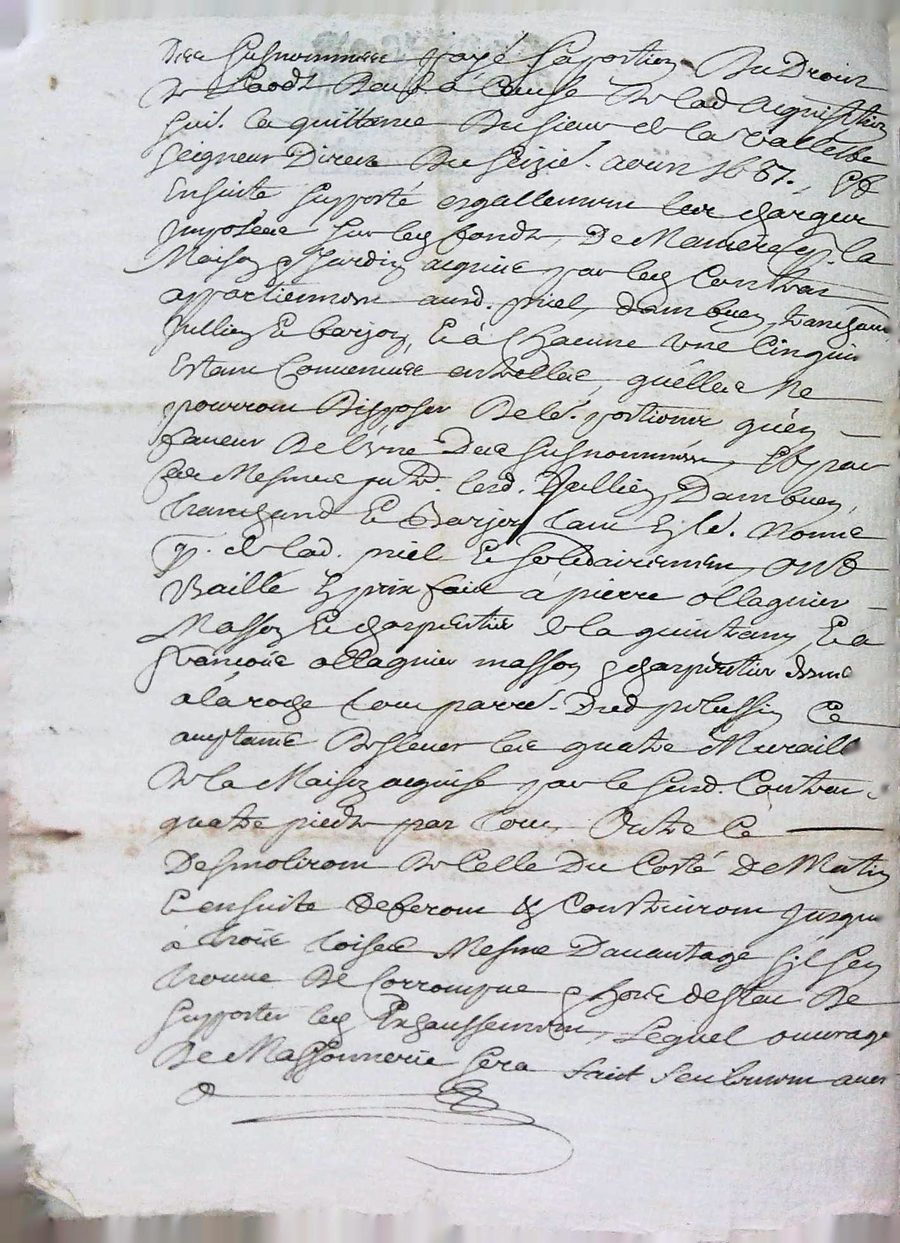 des susnommees payé sa portion du Droit
de Laods deus à cause de lad. acquisition
suiv. la quittance du sieur de la
seigneur Direct du seizie. avril 1687. et
Ensuite supporté esgallement les charges
Imposees sur les fonds, De Maniere q. la
Maison & Jardin acquise par les Contrat
appartiennent ausd. priel, Dambuen, tranchand
Jullien & barjon, & à Chacune une Cinquie
Estant Convenues entrelles, quélles Ne
pourront Disposer De le. portions qu'en
faveur De l'une Des susnommees, Et par
ces Mesmes pntes. lesd. Jullien, Dambuen,
tranchand & Barjon tant à le. nom
q. de lad. priel & solidairement, ont
Baillé à prix fait à pierre ollagnier
Masson & charpentier de la & à
françois ollagnier masson & charpentier
à la roche Dud. ce
acceptant D'eslever les quatre Muraille
de la Maison acquise par le susd. Contrat
quatre pieds par tout, Outre ce
Desmoliront de Celle Du Costé De Matin
& ensuite deferont & Construiront jusqu
à trois toises Mesme Davantage s'il s'en
trouve De Corrompue & hors destat De
supporter les Exhaussement, Lequel ouvrage
De Massonnerie sera fait seulement avec